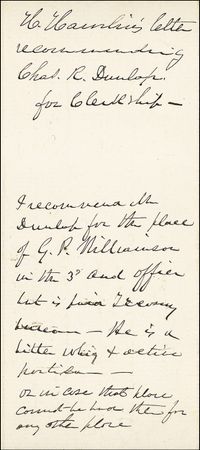 H. Hamlin's letter
recommending
Chas. R. Dunlap.
for Clerkship —
I recommend Mr
Dunlap for the place
of G. P. Williamson
in the 3d and office
— He is a
bitter whig & active
partizan —
or in case that place
cannot be had then for
any other place